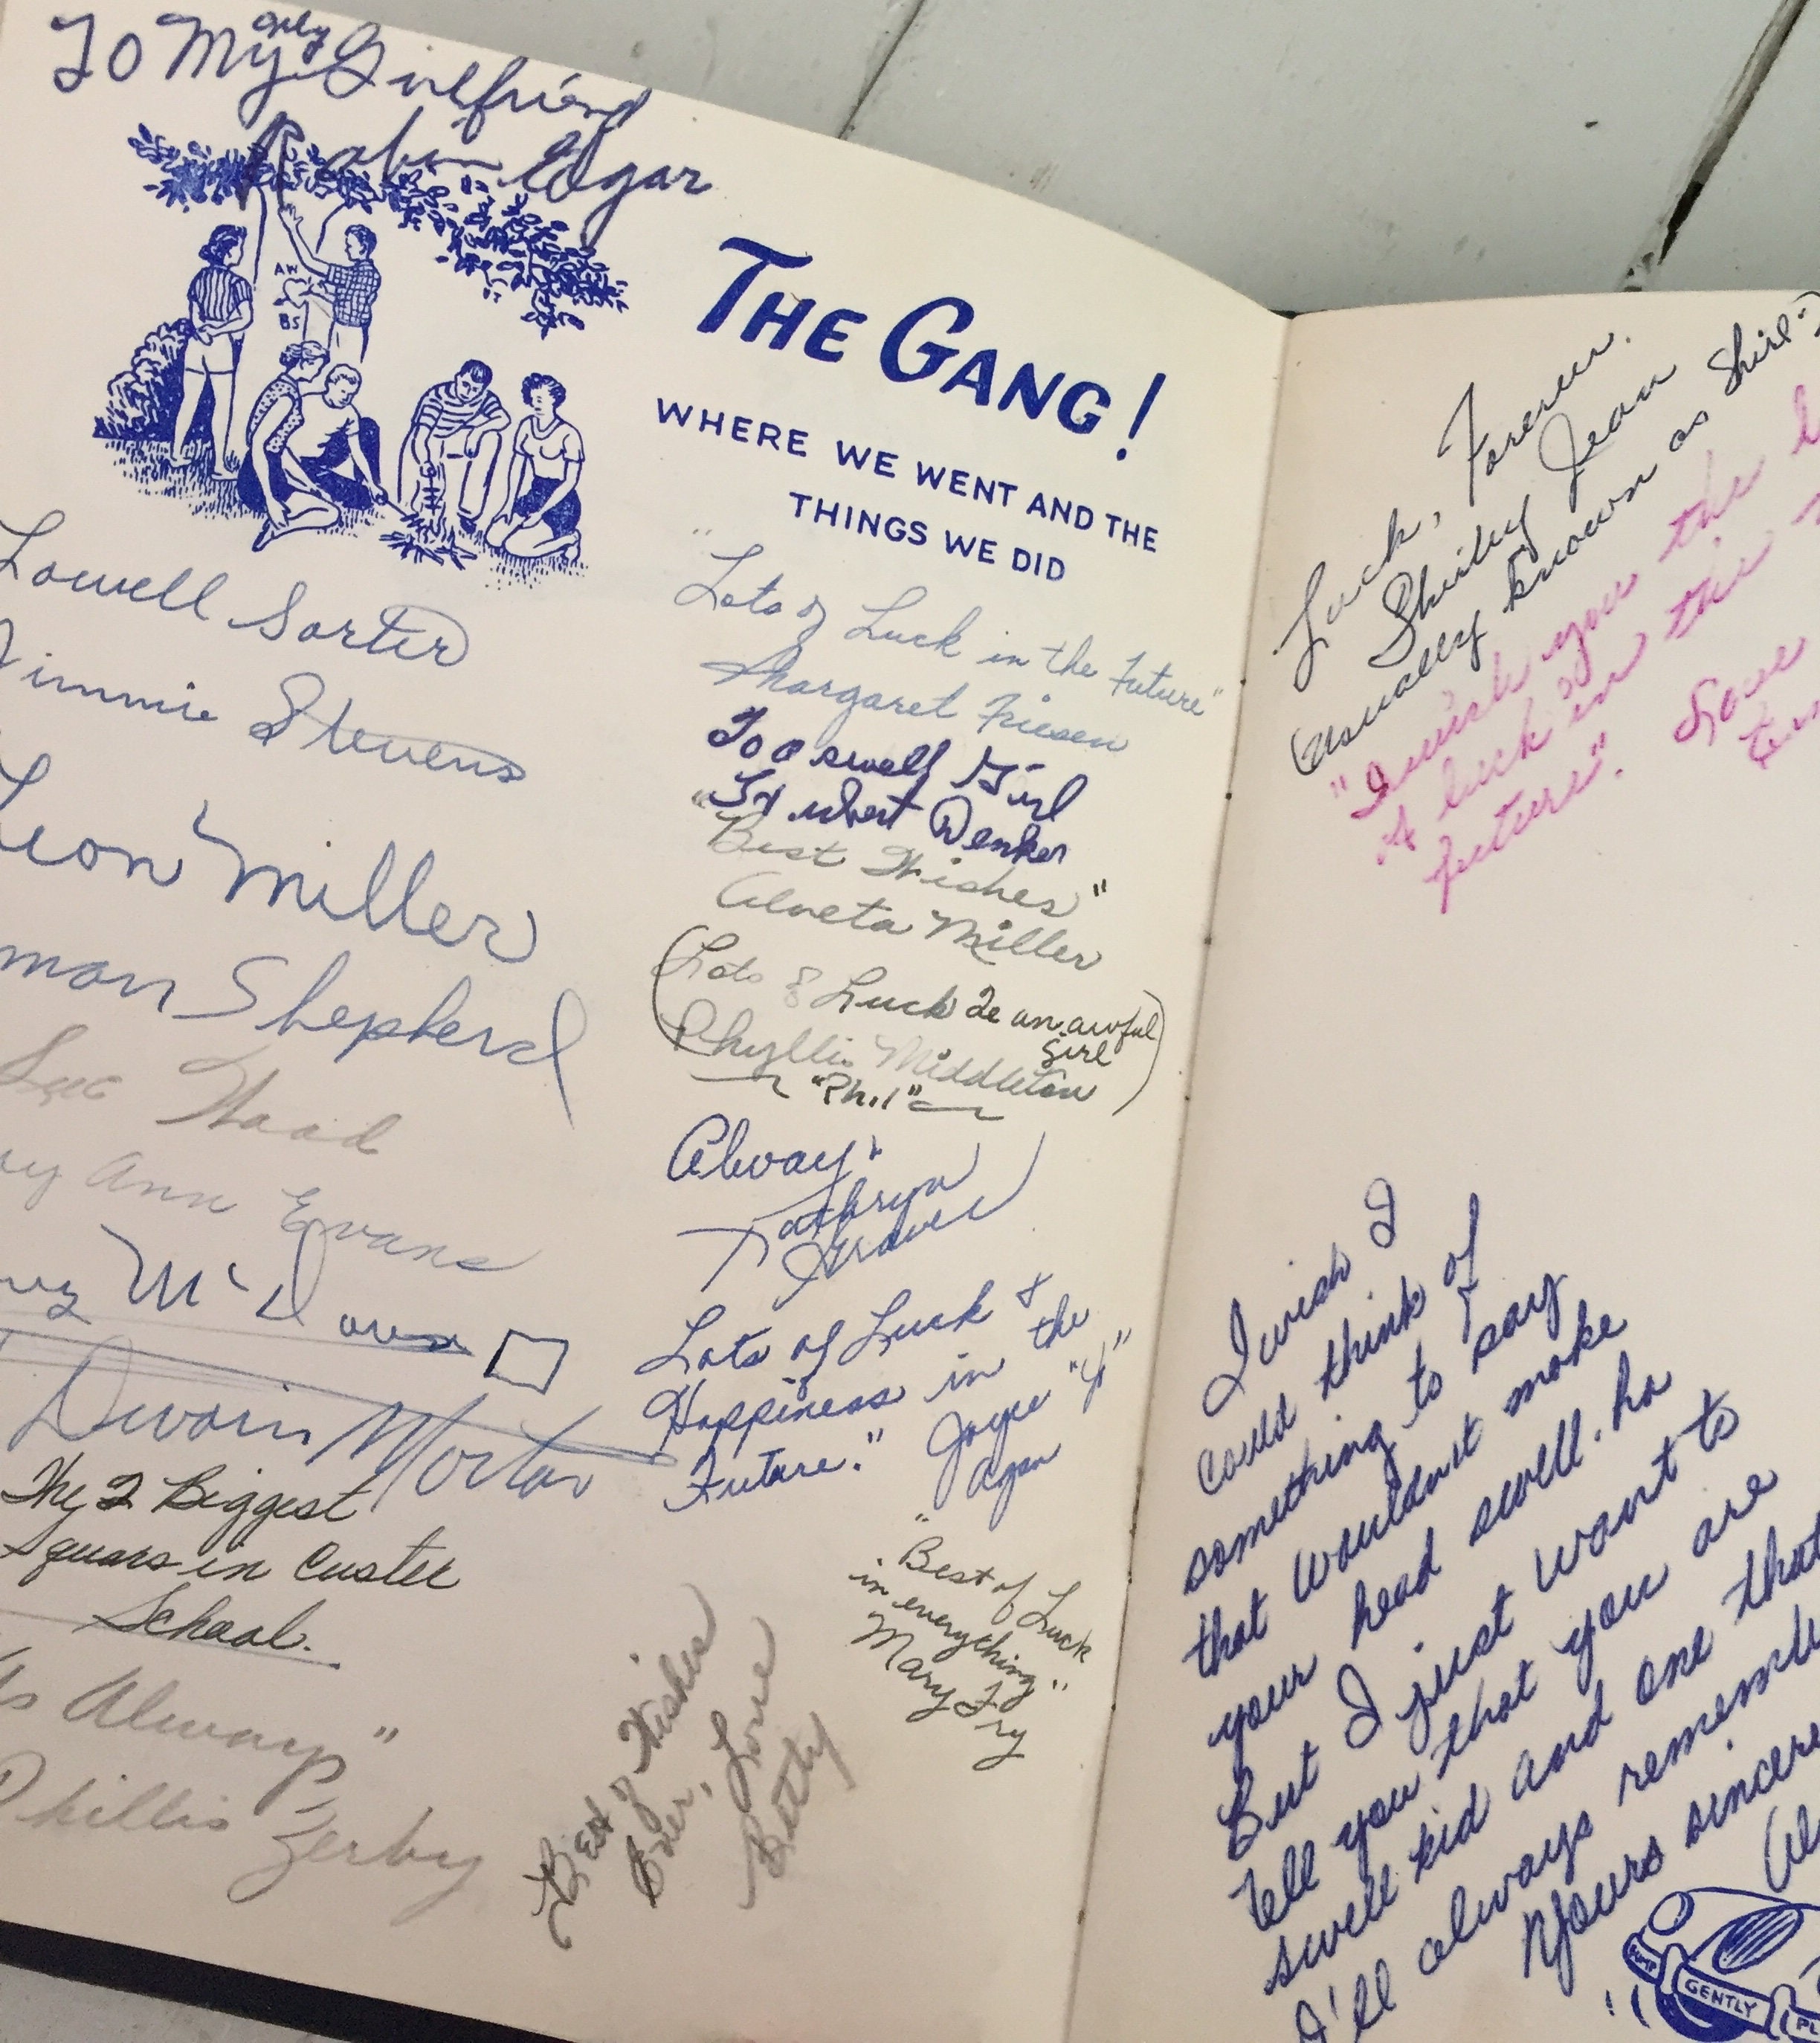 To My only Girlfriend
Edgar
AW
BS
THE GANG!
WHERE WE WENT AND THE
THINGS WE DID
Lowell Sorter
Jimmie Stevens
Leon Miller
Shepherd
Ann Evans
Dwain Morton
The 2 Biggest
Squars in Custer
School.
Always"
Phillis Zerby
"Lots of Luck in the Future"
Margaret Friesen
To a swell Girl
Hubert Denker
"Best Wishes"
Alveta Miller
(Lots of Luck 2 an awful
girl
Phyllis Middleton)
"Phil"
Always
Kathryn
Lots of Luck &
Happiness in the
Future." Joyce "Y"
"Best of Luck
in everything"
Mary Fry
Best of Wishes
Ever, Love
Betty
Luck, Forever.
Shirley Jean
Usually known as Shirl
"I wish you the
of luck in the
future". Love
I wish I
could think of
something to say
that wouldn't make
your head swell. ha
But I just want to
tell you that you are
swell kid and one that
I'll always remember
Yours sincere
BUMP
GENTLY